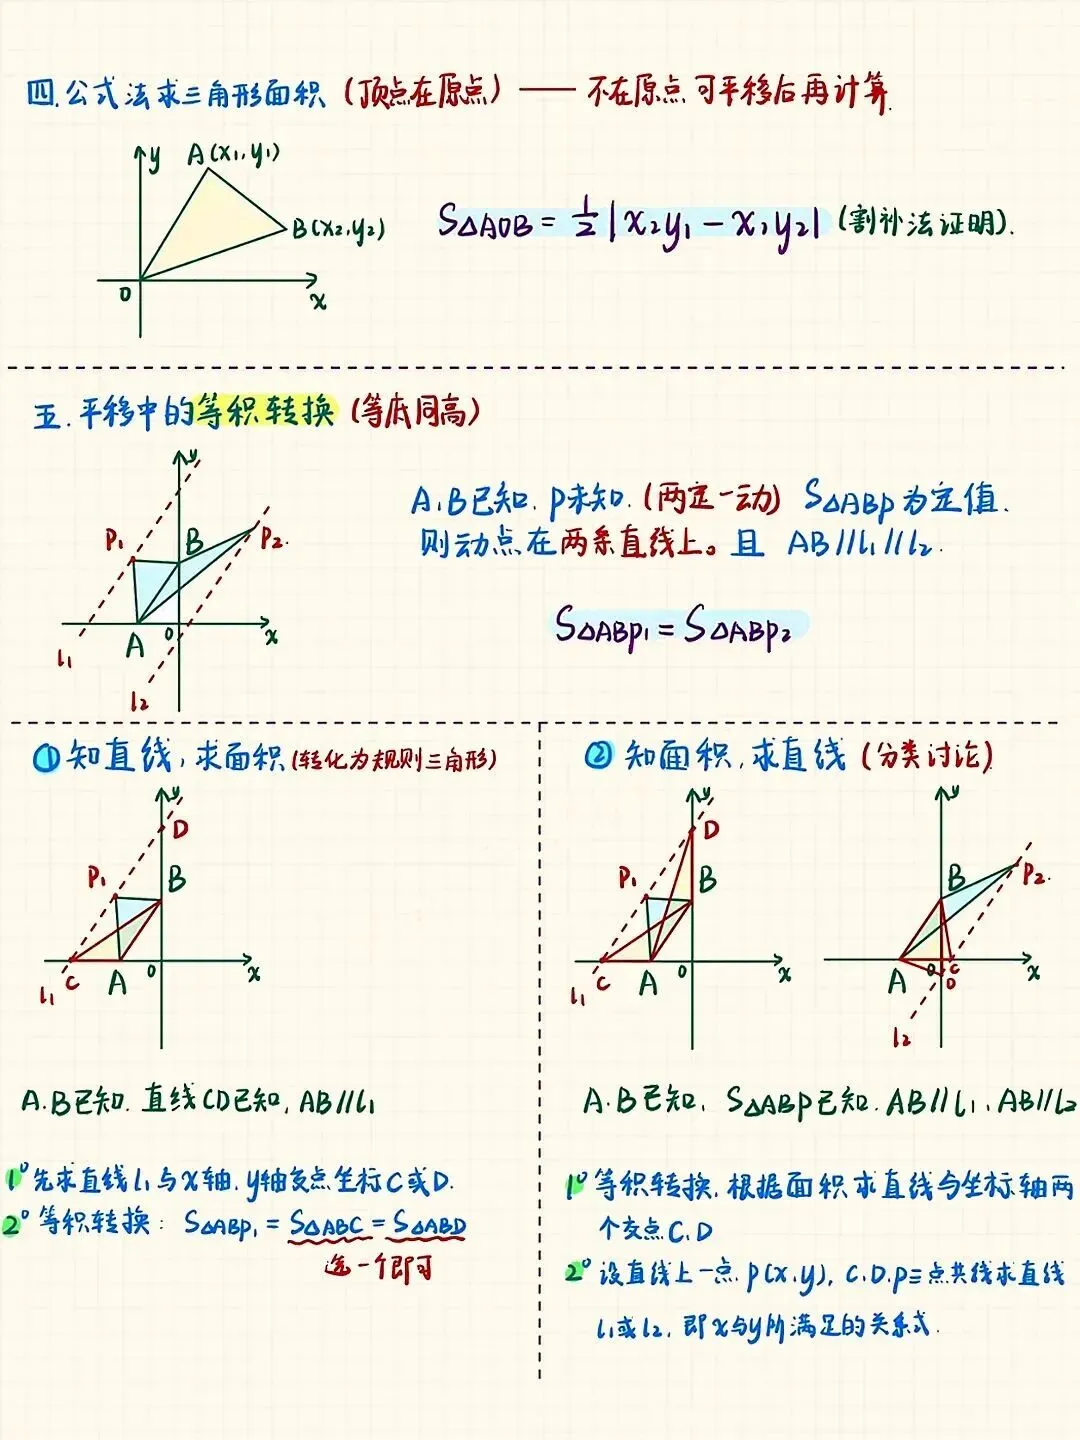 四.公式法求三角形面积(顶点在原点)——不在原点可平移后再计算.
y
A(x₁,y₁)
B(x₂,y₂)
S△AOB=½|x₂y₁-x₁y₂|(割补法证明).
O
x
五.平移中的等积转换(等底同高)
y
P₁
B
P₂.
A
O
x
l₁
l₂
A,B已知.P未知.(两定一动)S△ABP为定值.
则动点在两条直线上。且 AB//l₁//l₂.
S△ABP₁=S△ABP₂
①知直线,求面积(转化为规则三角形)
y
D
P₁
B
l₁
C
A
O
x
A.B已知.直线CD已知,AB//l₁
1°先求直线l₁与x轴.y轴交点坐标C或D.
2°等积转换:S△ABP₁=S△ABC=S△ABD
选一个即可
②知面积,求直线(分类讨论)
y
D
P₁
B
l₁
C
A
O
x
y
B
P₂.
A
O
C
D
x
l₂
A.B已知,S△ABP已知.AB//l₁,AB//l₂
1°等积转换.根据面积求直线与坐标轴两
个交点C.D
2°设直线上一点.P(x,y),C.D.P三点共线求直线
l₁或l₂.即x与y所满足的关系式.